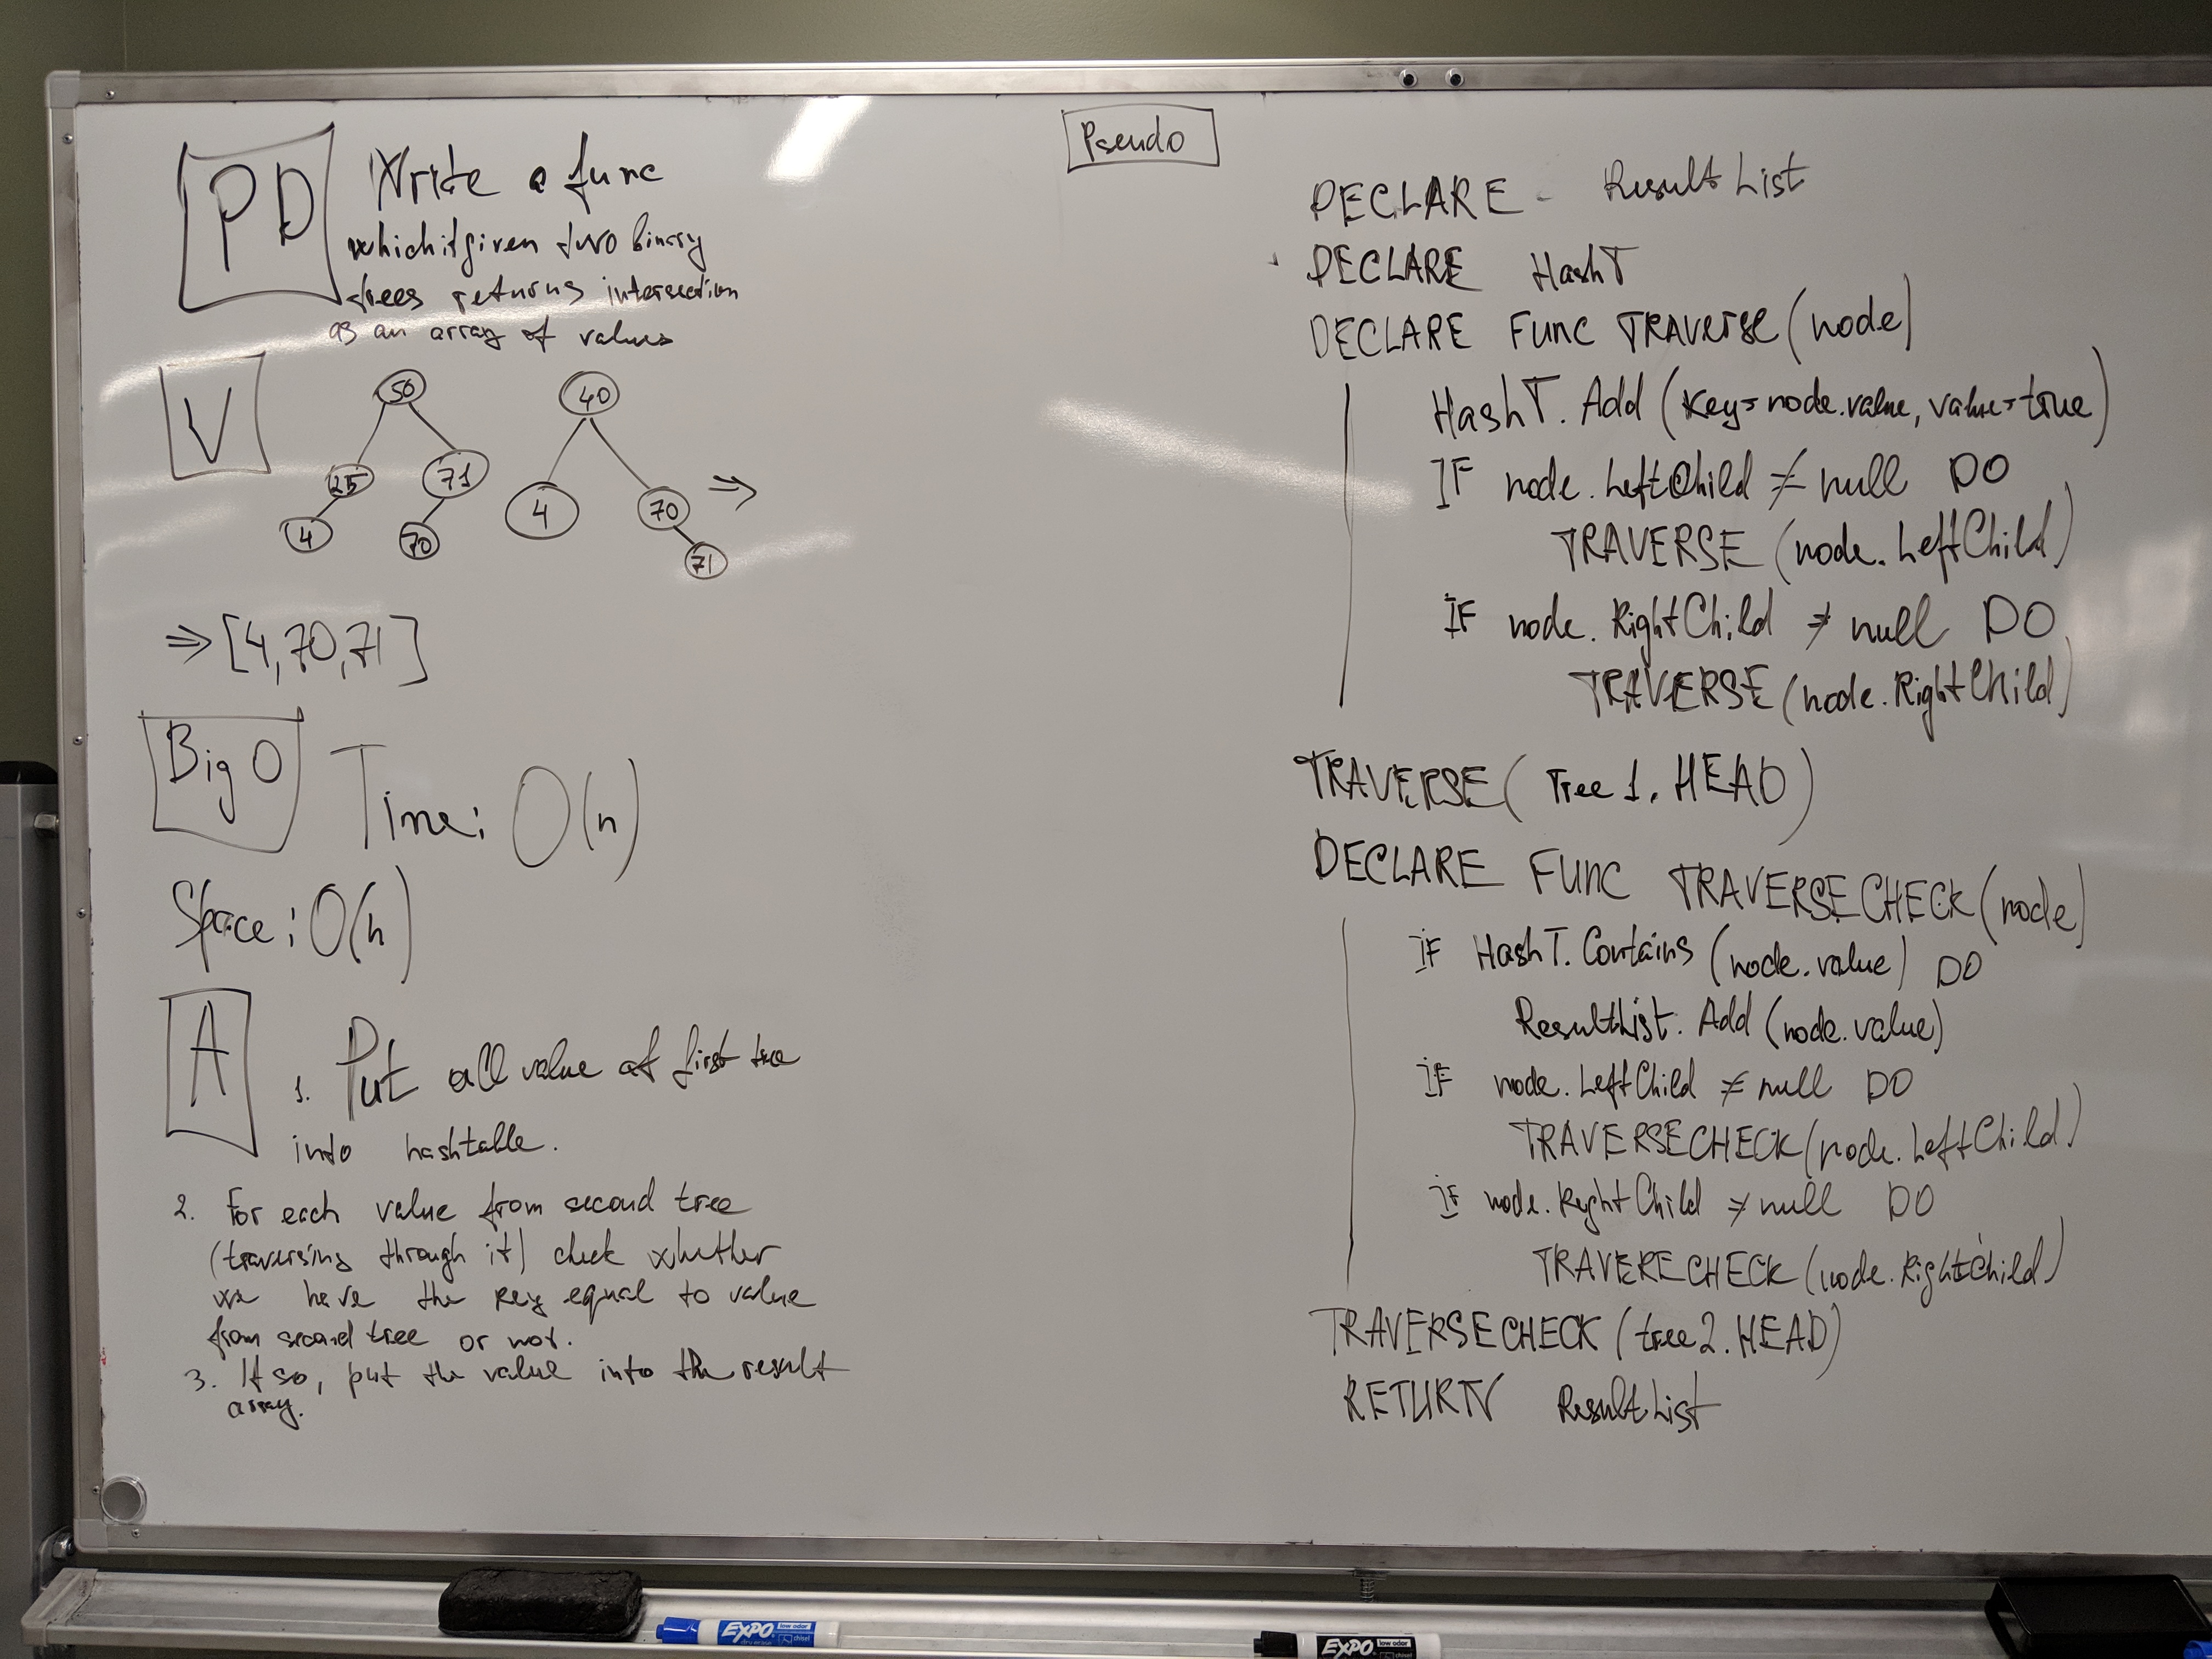 PD
Write a func
which if given two binary
trees returns intersection
as an array of values
V
50
40
25
71
4
70
4
70
71
⇒
⇒ [4, 70, 71]
Big O
Time: O(n)
Space: O(n)
A
1. Put all value of first tree
into hashtable.
2. For each value from second tree
(traversing through it) check whether
we have the key equal to value
from second tree or not.
3. If so, put the value into the result
array.
Pseudo
DECLARE ResultList
DECLARE HashT
DECLARE Func TRAVerse (node)
HashT. Add (Key=node.value, value=true)
IF node. LeftChild ≠ null DO
TRAVERSE (node. LeftChild)
IF node. RightChild ≠ null DO
TRAVERSE (node. RightChild)
TRAVERSE (Tree 1. HEAD)
DECLARE FUNC TRAVERSECHECK (node)
IF HashT. Contains (node.value) DO
ResultList. Add (node.value)
IF node. LeftChild ≠ null DO
TRAVERSECHECK (node. LeftChild)
IF node. RightChild ≠ null DO
TRAVERECHECK (node. RightChild)
TRAVERSECHECK (tree 2. HEAD)
RETURN ResultList
EXPO low odor
dry erase chisel
EXPO low odor
chisel